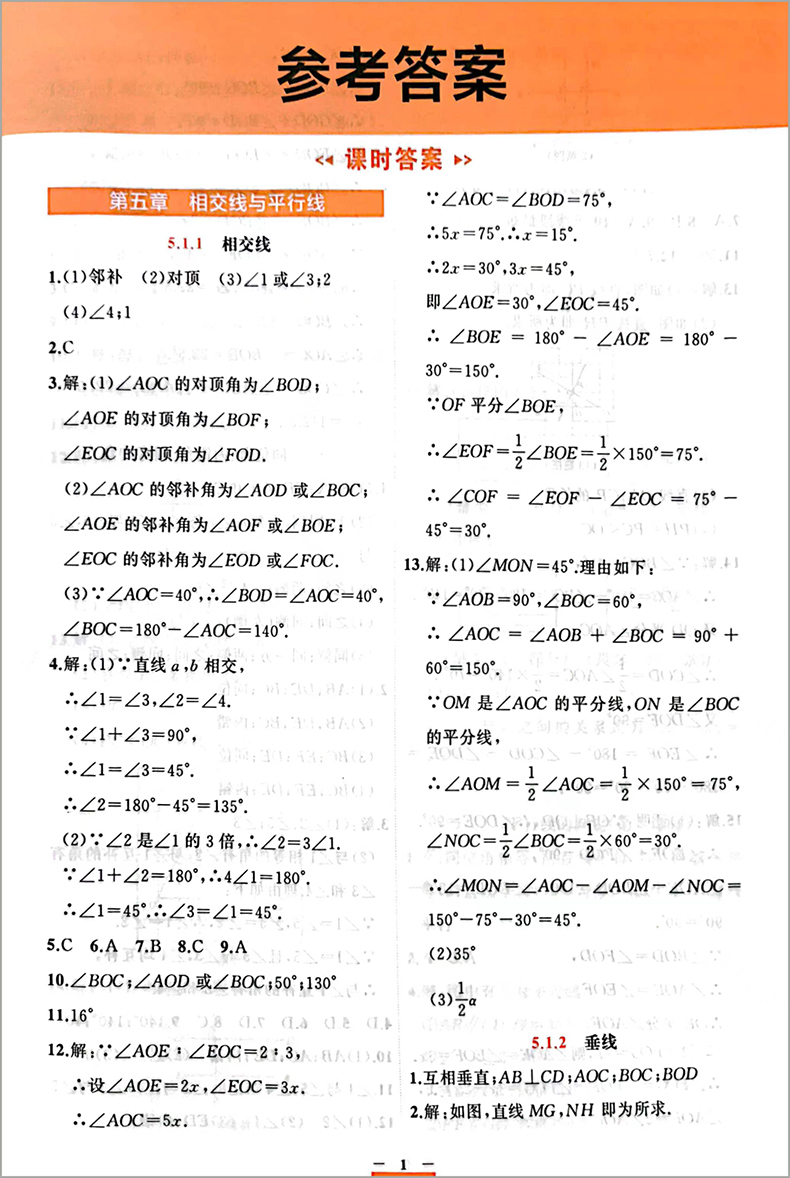 参考答案
课时答案
第五章 相交线与平行线
5.1.1 相交线
1.(1)邻补 (2)对顶 (3)∠1或∠3;2
(4)∠4;1
2.C
3.解:(1)∠AOC的对顶角为∠BOD;
∠AOE的对顶角为∠BOF;
∠EOC的对顶角为∠FOD.
(2)∠AOC的邻补角为∠AOD或∠BOC;
∠AOE的邻补角为∠AOF或∠BOE;
∠EOC的邻补角为∠EOD或∠FOC.
(3)∵∠AOC=40°,∴∠BOD=∠AOC=40°,
∠BOC=180°-∠AOC=140°.
4.解:(1)∵直线a,b相交,
∴∠1=∠3,∠2=∠4.
∵∠1+∠3=90°,
∴∠1=∠3=45°.
∴∠2=180°-45°=135°.
(2)∵∠2是∠1的3倍,∴∠2=3∠1.
∵∠1+∠2=180°,∴4∠1=180°.
∴∠1=45°.∴∠3=∠1=45°.
5.C 6.A 7.B 8.C 9.A
10.∠BOC;∠AOD或∠BOC;50°;130°
11.16°
12.解:∵∠AOE:∠EOC=2:3,
∴设∠AOE=2x,∠EOC=3x.
∴∠AOC=5x.
∵∠AOC=∠BOD=75°,
∴5x=75°.∴x=15°.
∴2x=30°,3x=45°,
即∠AOE=30°,∠EOC=45°.
∴∠BOE=180°-∠AOE=180°-
30°=150°.
∵OF平分∠BOE,
∴∠EOF=1/2∠BOE=1/2×150°=75°.
∴∠COF=∠EOF-∠EOC=75°-
45°=30°.
13.解:(1)∠MON=45°.理由如下:
∵∠AOB=90°,∠BOC=60°,
∴∠AOC=∠AOB+∠BOC=90°+
60°=150°.
∵OM是∠AOC的平分线,ON是∠BOC
的平分线,
∴∠AOM=1/2∠AOC=1/2×150°=75°,
∠NOC=1/2∠BOC=1/2×60°=30°.
∴∠MON=∠AOC-∠AOM-∠NOC=
150°-75°-30°=45°.
(2)35°
(3)1/2α
5.1.2 垂线
1.互相垂直;AB⊥CD;AOC;BOC;BOD
2.解:如图,直线MG,NH即为所求.
1